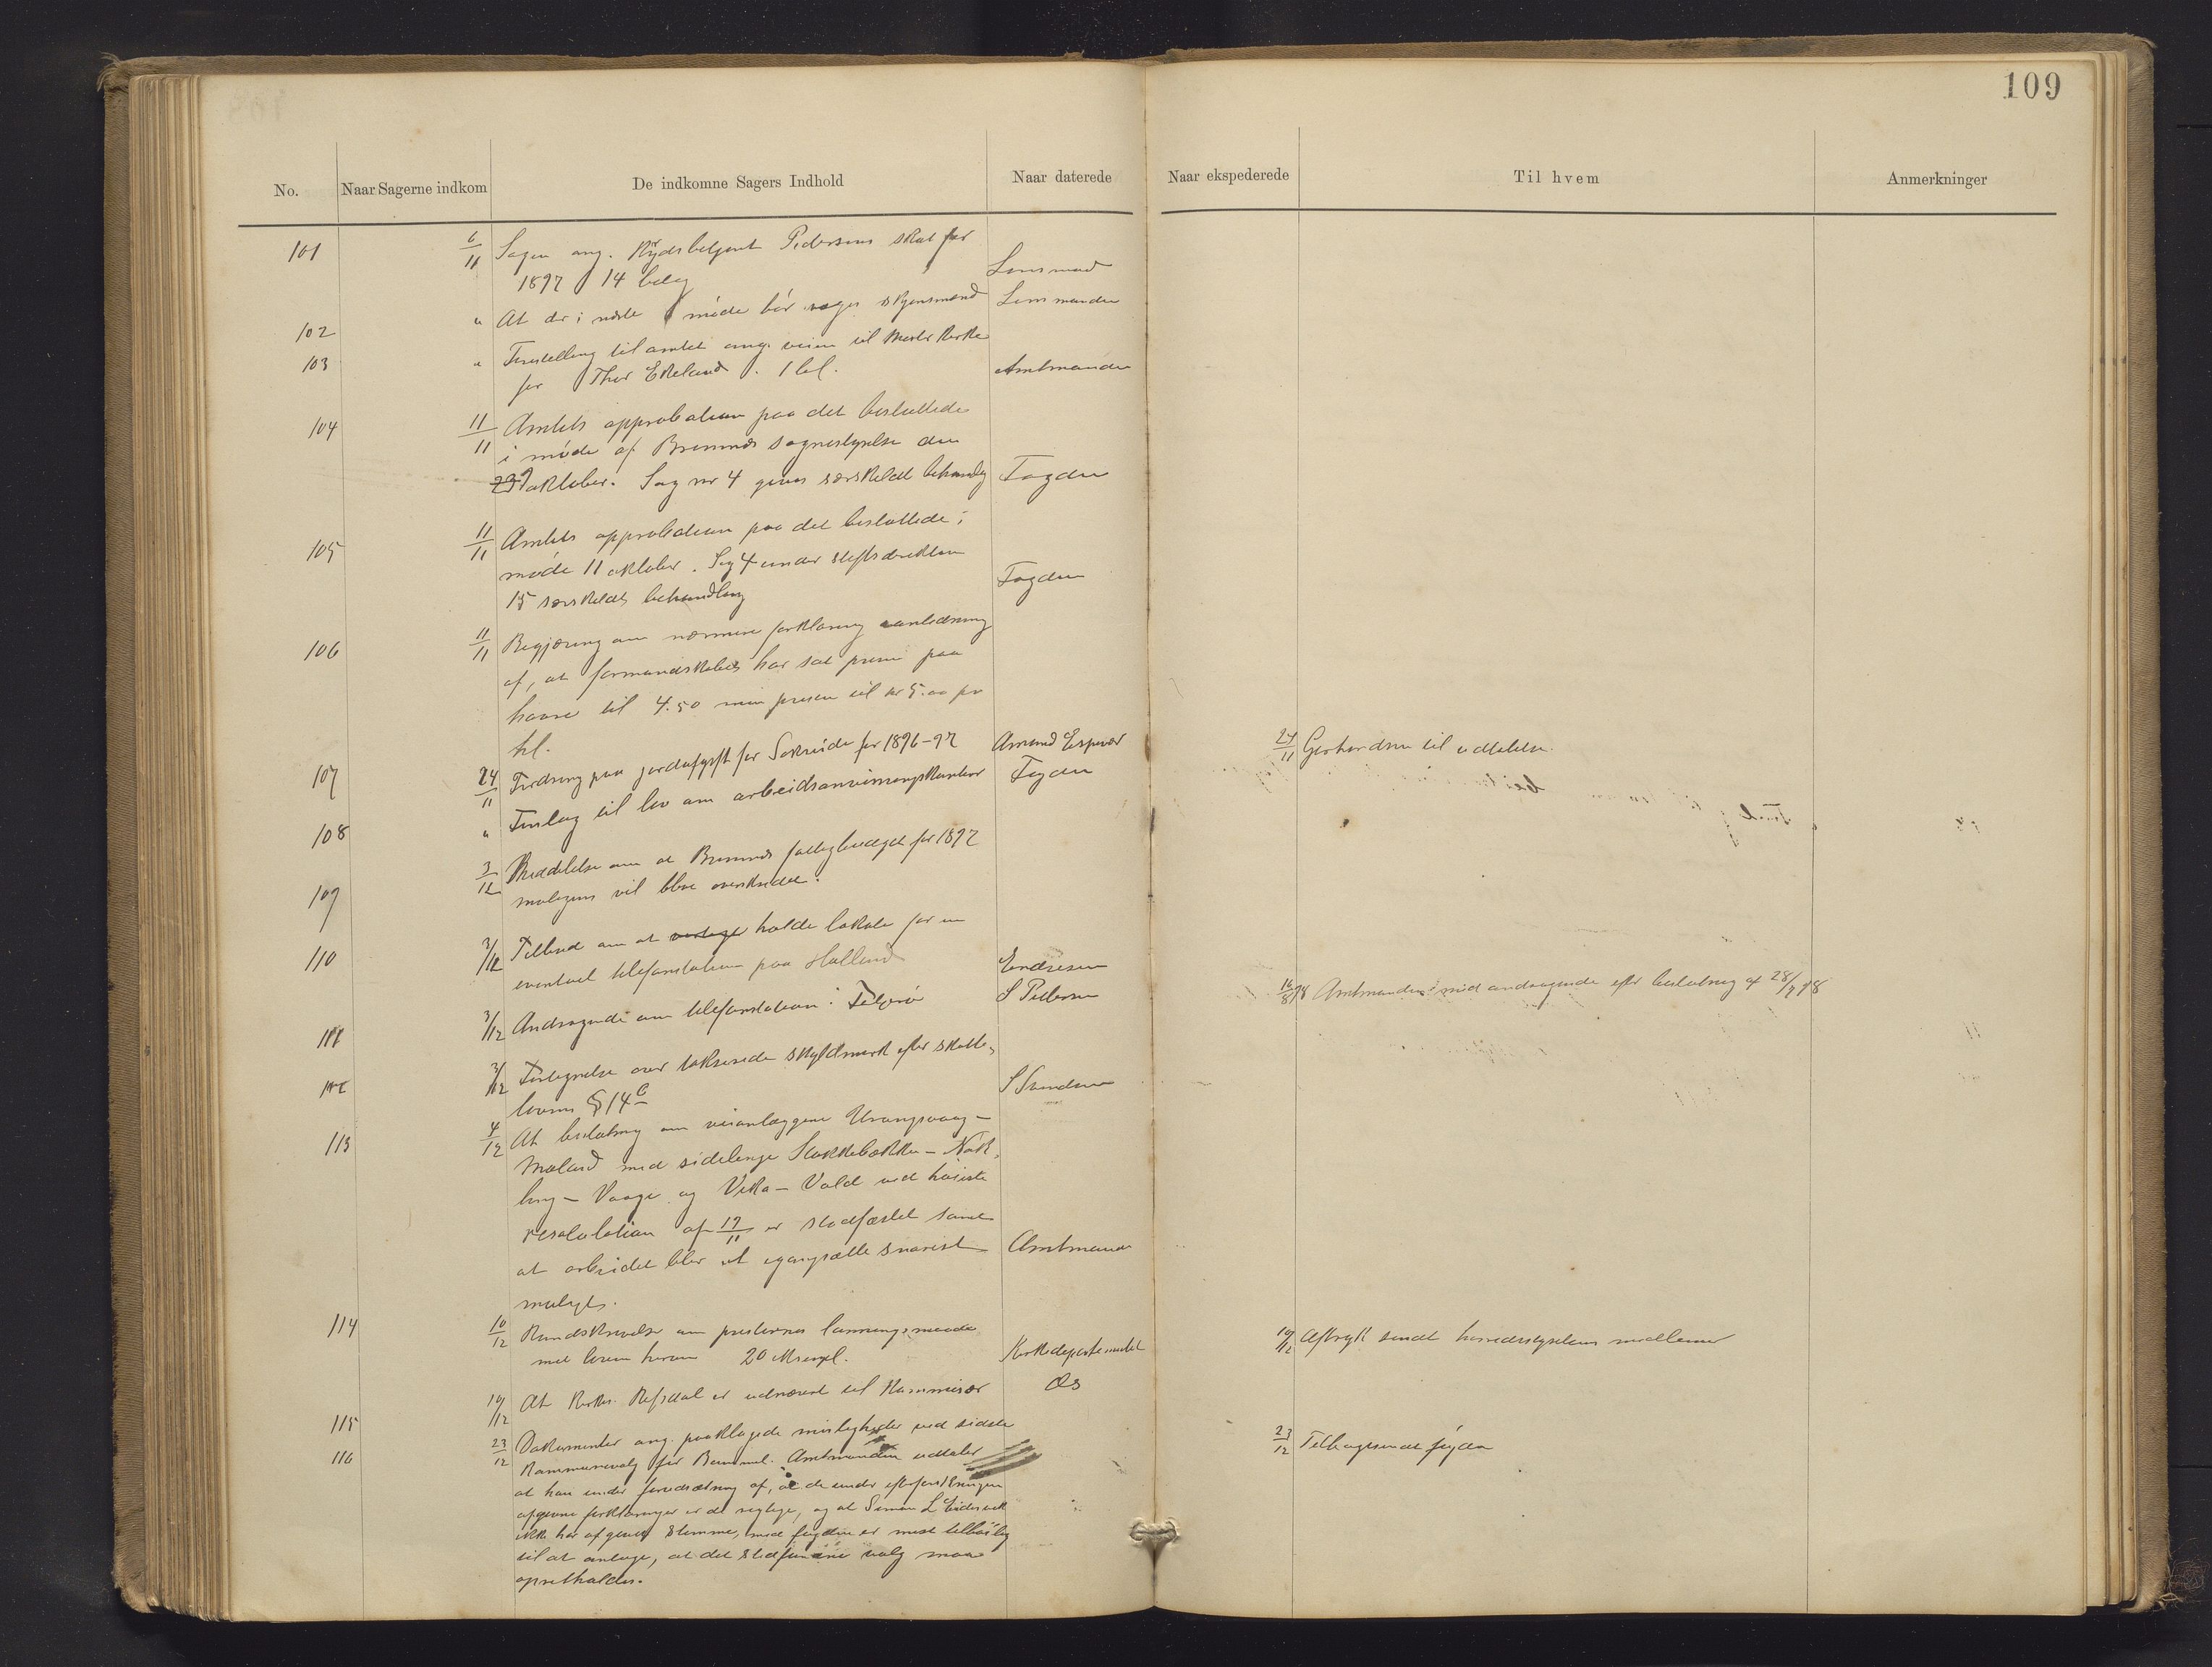 109
No.
Naar Sagerne indkom
De indkomne Sagers Indhold
Naar daterede
Naar ekspederede
Til hvem
Anmerkninger
101 6/11 Sagen ang. Pedersens skat for
1897 14 beleg Lensmand
102 " At der i næste møde bør skjønsmænd Lensmanden
103 " Forestilling til amtet ang. veien til kirke
for Thor Ekeland. 1 bil. Amtmanden
104 11/11 Amtets approbation paa det besluttede
i møde af Bremnes sognestyrelse den
oktober. Sag nr 4 gives særskildt behandlg Fogden
105 11/11 Amtets approbation paa det besluttede i
møde 11 oktober. Sag 4 under
15 særskildt behandling Fogden
106 11/11 Begjæring om nærmere forklaring anledning
af, at formandskabet har sat prisen paa
havre til 4.50 men prisen til kr 5.00 pr
hl.
107 24/11 Fordring paa jordafgift for for 1896-97 Amund Espevær 24/11 Gerhardsen til udtalelse.
108 " Forslag til lov om arbeidsanvisningskontor Fogden
109 3/12 Meddelelse om at Bremnes fattigbudget for 1897
muligens vil blive overskredet.
110 3/12 Tilbud om at holde lokale for en
eventuel telefonstation paa Hallerad Endresen
111 3/12 Andragende om telefonstation i S Pedersen 16/8 98 Amtmanden med andragende efter beslutning af 28/7 98
112 3/12 Fortegnelse over takserede skyldmark efter skatte-
lovens § 14 c S Svendsen
113 4/12 At beslutning om veianlæggene Urangsvaag -
Mæland med sidelenge Stokkebækken - Nøk-
ling - Vaage og Vika - Vold ved høieste
resolution af 17/11 er stadfæstet samt
at arbeidet blir at igangsætte snarest Amtmand
muligt.
114 10/12 Rundskrivelse om presternes lønningsmaade
med loven herom 20 eksempl. Kirkedepartementet 19/12 Aftryk sendt herredsstyrelsens medlemmer
115 14/12 At Kirkes. Refsdal er udnævnt til kommissær Os
116 23/12 Dokumenter ang. paaklagede misligheder ved sidste 23/12 Tilbagesendt fogden
kommunevalg for Bømmel. Amtmanden udtaler
at han under forudsætning af, at de under efterforskningen
afgivne forklaringer er de rigtige, og at Simon L Eidesvik
ikke har afgivet stemme, med fogden er mest tilbøielig
til at antage, at det stedfundne valg maa
opretholdes.